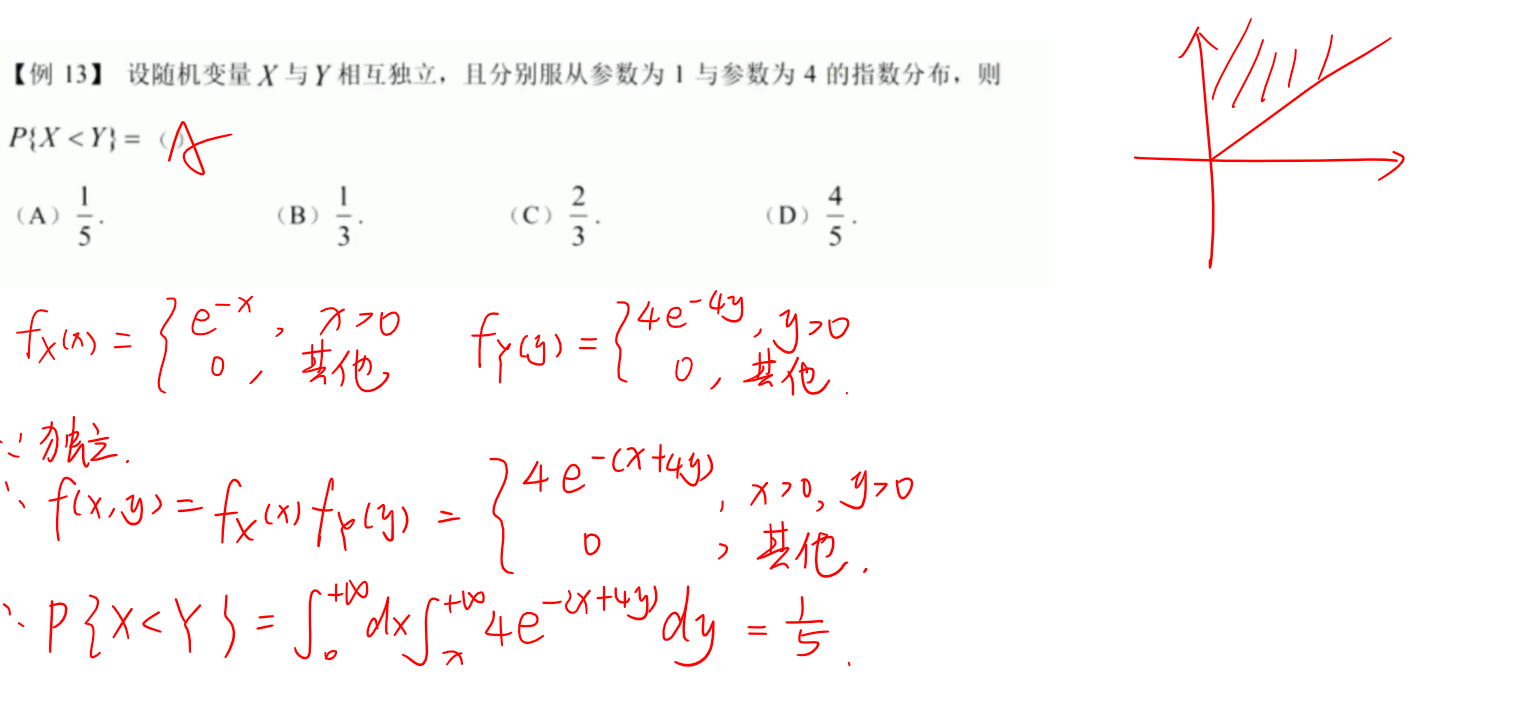 【例 13】 设随机变量 X 与 Y 相互独立，且分别服从参数为 1 与参数为 4 的指数分布，则
P{X < Y} = （A）
（A） 1/5 . （B） 1/3 . （C） 2/3 . （D） 4/5 .
f_X(x) = { e^{-x}, x>0 ; 0, 其他 f_Y(y) = { 4e^{-4y}, y>0 ; 0, 其他.
∵ 独立.
∴ f(x,y) = f_X(x) f_Y(y) = { 4e^{-(x+4y)}, x>0, y>0 ; 0, 其他.
∴ P{X<Y} = ∫_0^{+∞} dx ∫_x^{+∞} 4e^{-(x+4y)} dy = 1/5 .